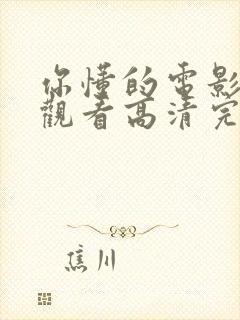 你懂的電影
觀看高清完
焦川